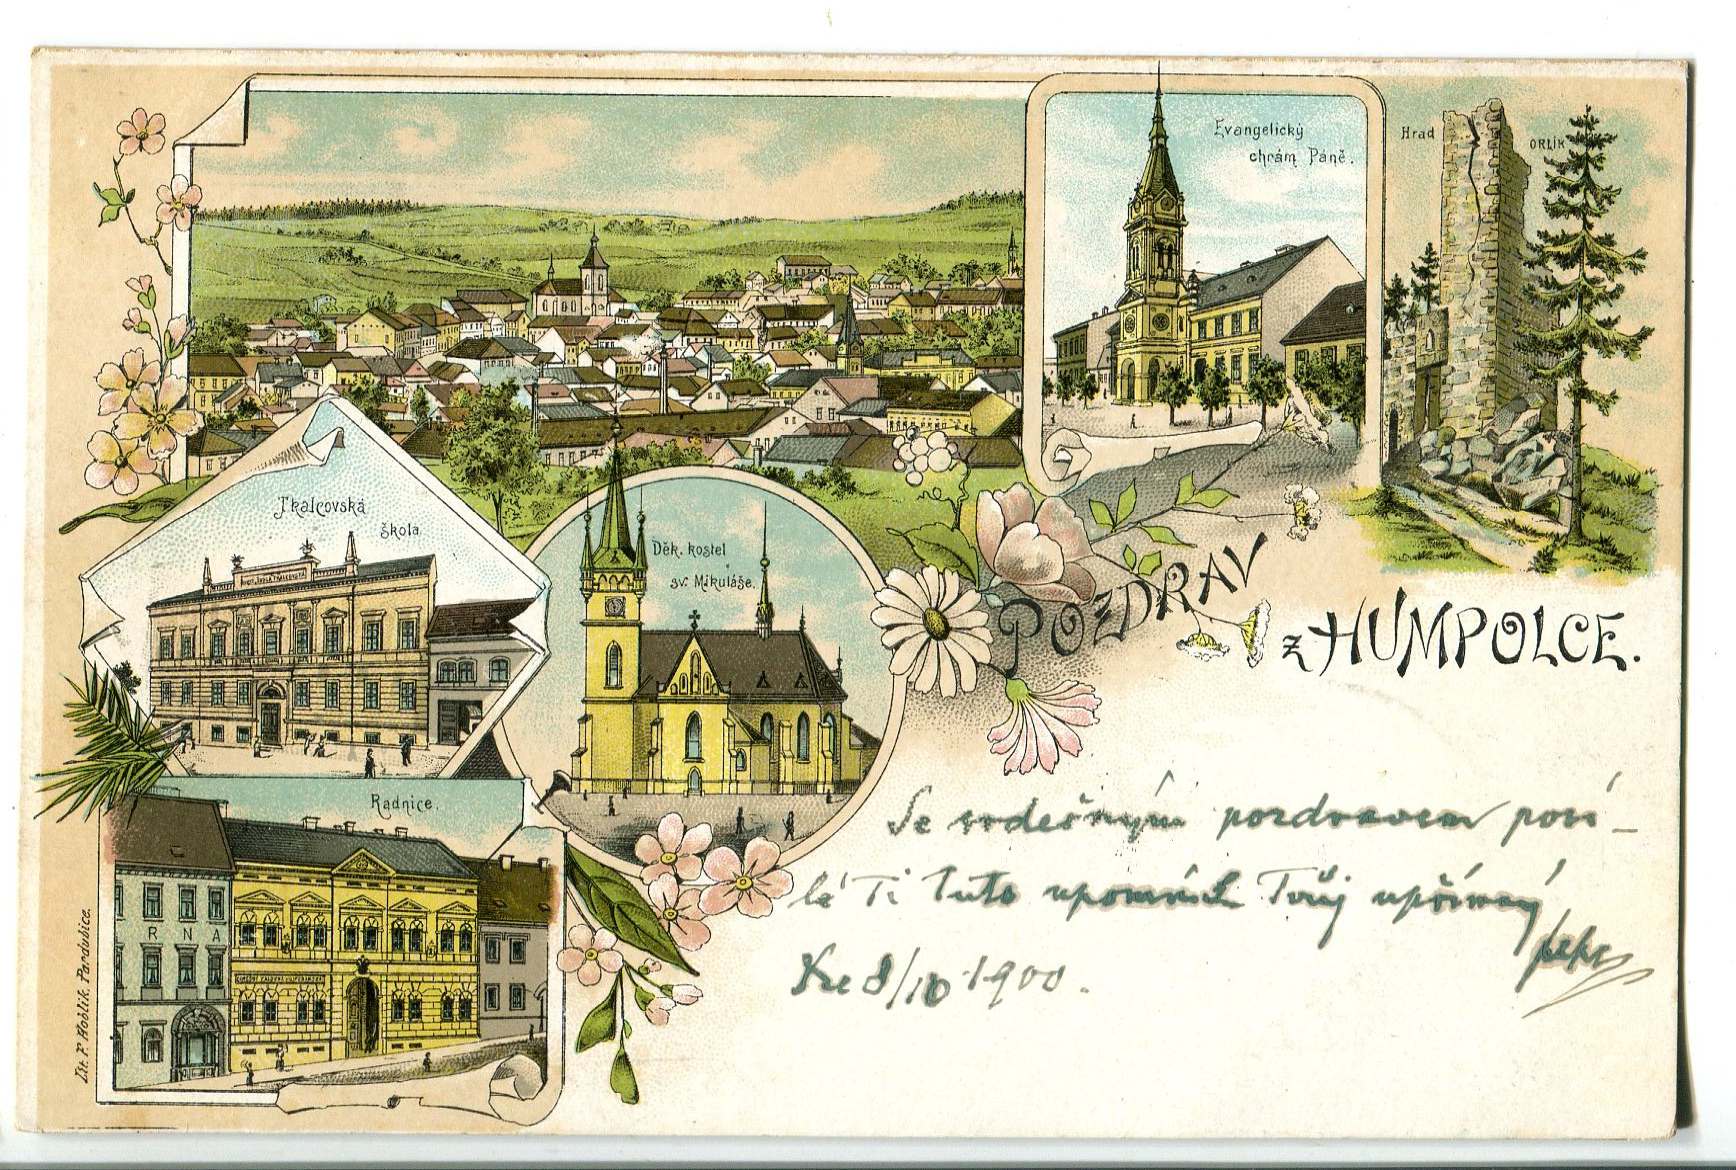 Evangelický
chrám Páně.
Hrad
ORLÍK
Tkalcovská
škola.
Děk. kostel
sv. Mikuláše.
POZDRAV
z HUMPOLCE.
Radnice.
RNA
Se srdečným pozdravem posí-
lá Ti tuto upomínk Tvůj upřímný
Pepa
Ke 8/10 1900.
Lit. F. Hoblík, Pardubice.